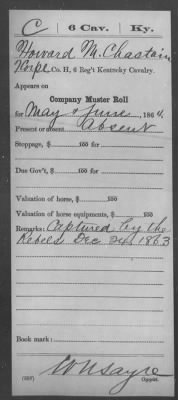 C | 6 Cav. | Ky.
Howard M. Chastain
Corpl, Co. H, 6 Reg't Kentucky Cavalry.
Appears on
Company Muster Roll
for May & June, 1864.
Present or absent Absent
Stoppage, $ 100 for
Due Gov't, $ 100 for
Valuation of horse, $ 100
Valuation of horse equipments, $ 100
Remarks: Captured by the
Rebels Dec 24, 1863
Book mark:
W N Sayre
(358) Copyist.